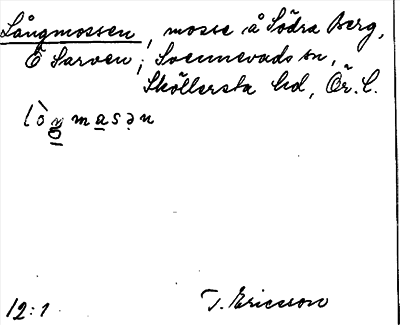 Långmossen, mosse å Södra Berg,
Ö Sarven, Svennevads sn,
Sköllersta hd, Ör. l.
12:1 T. Ericsson